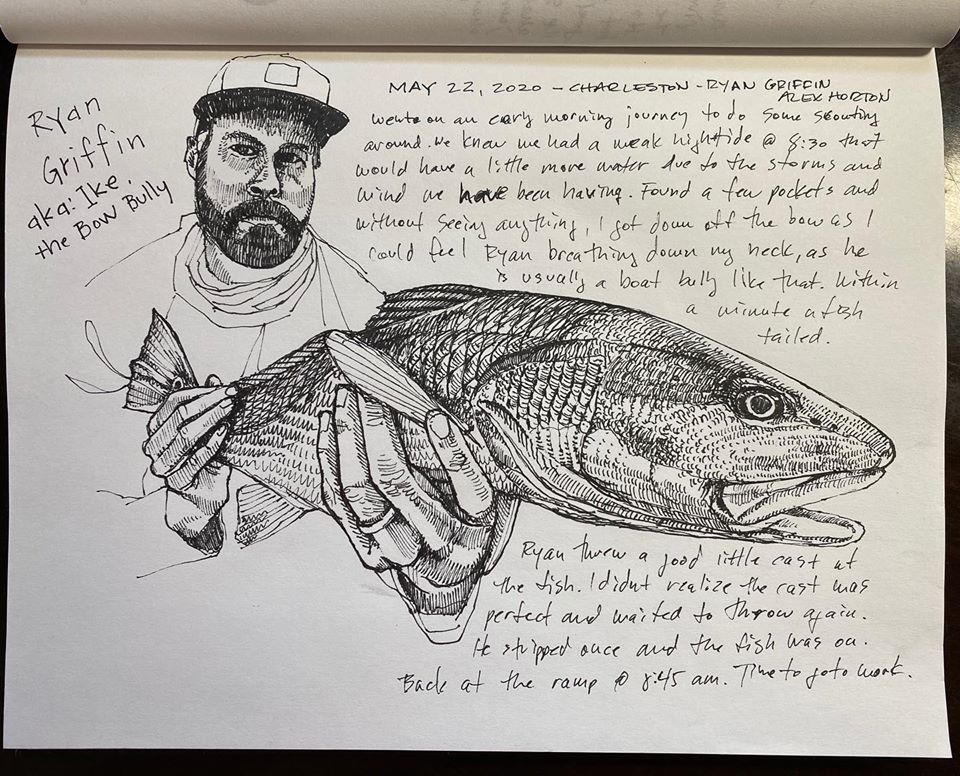 Ryan
Griffin
aka: Ike,
the Bow Bully
MAY 22, 2020 - CHARLESTON - RYAN GRIFFIN
ALEX HORTON
went on an early morning journey to do some scouting
around. We knew we had a weak hightide @ 8:30 that
would have a little more water due to the storms and
wind we have been having. Found a few pockets and
without seeing anything, I got down off the bow as I
could feel Ryan breathing down my neck, as he
is usually a boat bully like that. Within
a minute a fish
tailed.
Ryan threw a good little cast at
the fish. I didnt realize the cast was
perfect and waited to throw again.
He stripped once and the fish was on.
Back at the ramp @ 8:45 am. Time to go to work.